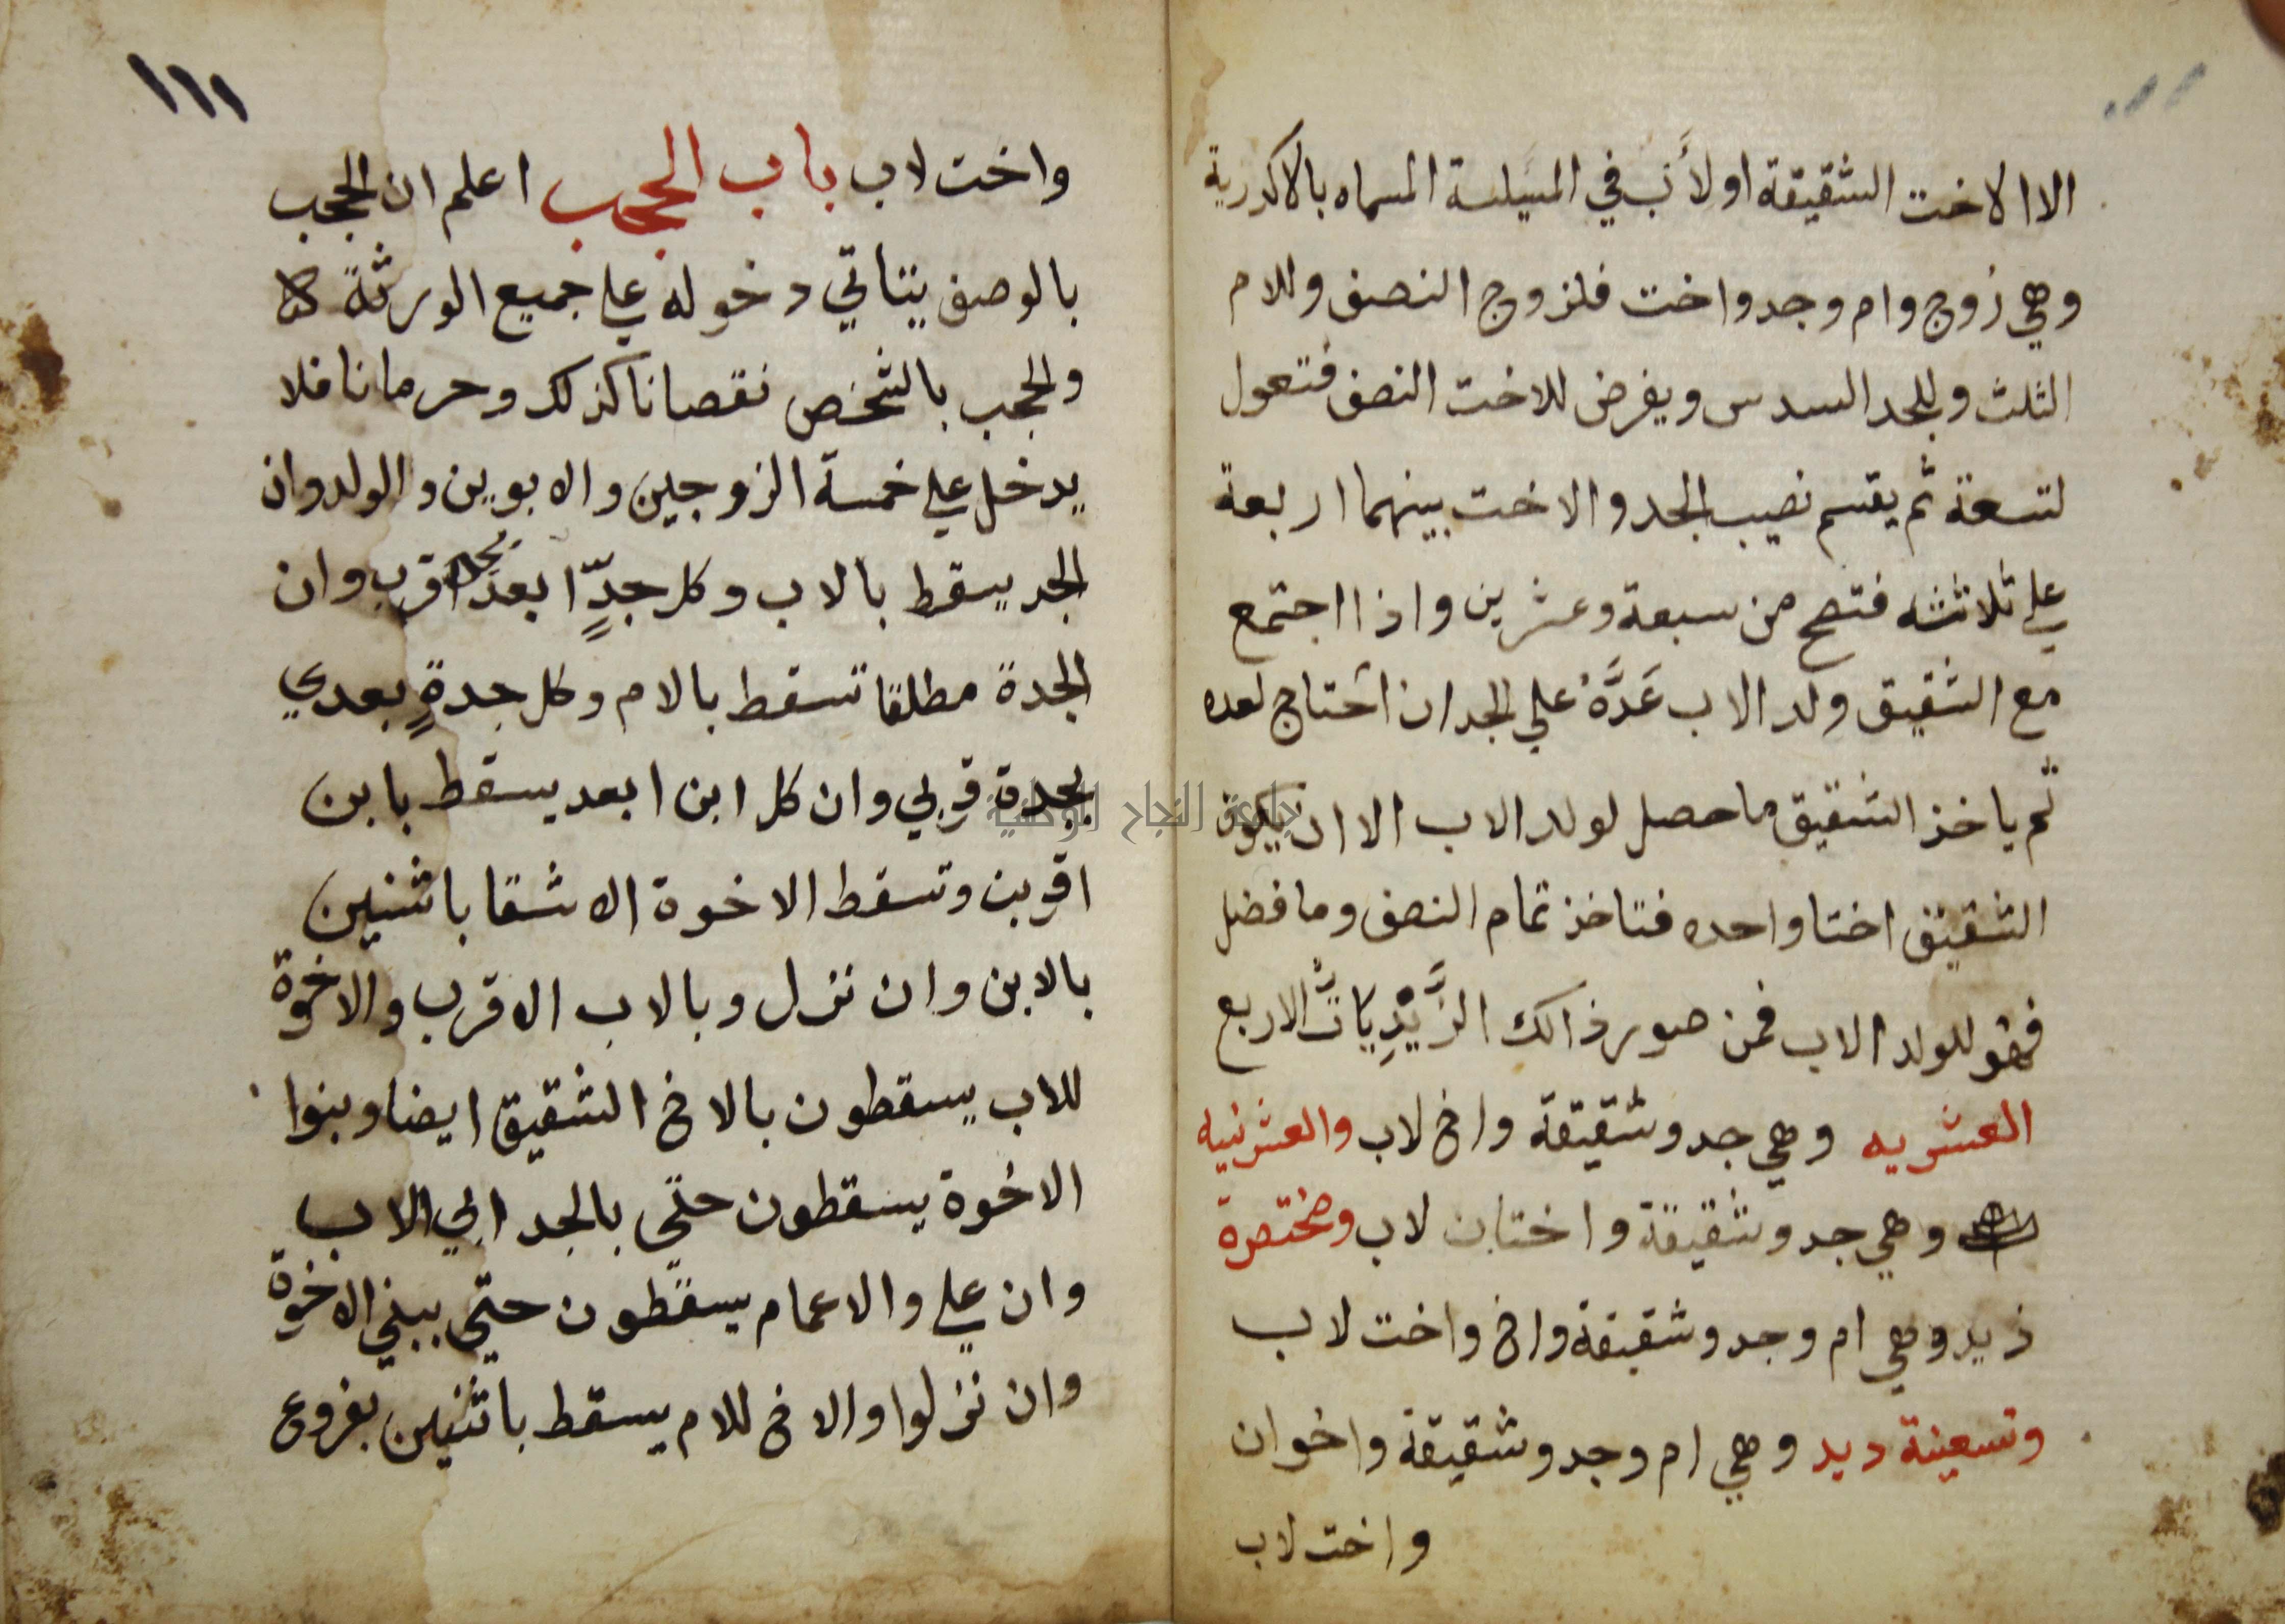 الا الاخت الشقيقة او لأب في المسيلسة المسماه بالاكدرية
وهي زوج وام وجد واخت فلزوج النصف وللام
الثلث وللجد السدس ويفرض للاخت النصف فتعول
لتسعة ثم يقسم نصيب الجد والاخت بينهما اربعة
علي ثلاثثه فتصح من سبعة وعشرين واذا اجتمع
مع الشقيق ولد الاب عَدَّهُ علي الجد ان احتاج لعده
ثم ياخذ الشقيق ما حصل لولد الاب الا ان يكون
الشقيق اختا واحده فتاخذ تمام النصف وما فضل
فهو للولد الاب فمن صور ذالك الزَّيْدِيَاتُ الاربع
العشريه وهي جد وشقيقة واخ لاب والعشرنيه
وهي جد وشقيقة واختان لاب ومختصرة
زيد وهي ام وجد وشقيقة واخ واخت لاب
وتسعينة ديد وهي ام وجد وشقيقة واخوان
واخت لاب
١١١
واخت لاب باب الحجب اعلم ان الحجب
بالوصف يتاتي دخوله علي جميع الورثة كلا
والحجب بالشخص نقصانا كذلك وحرمانا فلا
يدخل علي خمسة الزوجين والابوين والولد وان
الجد يسقط بالاب وكل جدٍّ ابعد بجد اقرب وان
الجدة مطلقا تسقط بالام وكل جدةٍ بعدي
بجدة قربي وان كل ابن ابعد يسقط بابن
اقرب وتسقط الاخوة الاشقا باثنين
بالابن وان نزل وبالاب الاقرب والاخوة
للاب يسقطون بالاخ الشقيق ايضا وبنوا
الاخوة يسقطون حتي بالجد ابي الاب
وان علي والاعمام يسقطون حتي ببني الاخوة
وان نزلوا والاخ للام يسقط باثنين بفروع
جامعة النجاح الوطنية